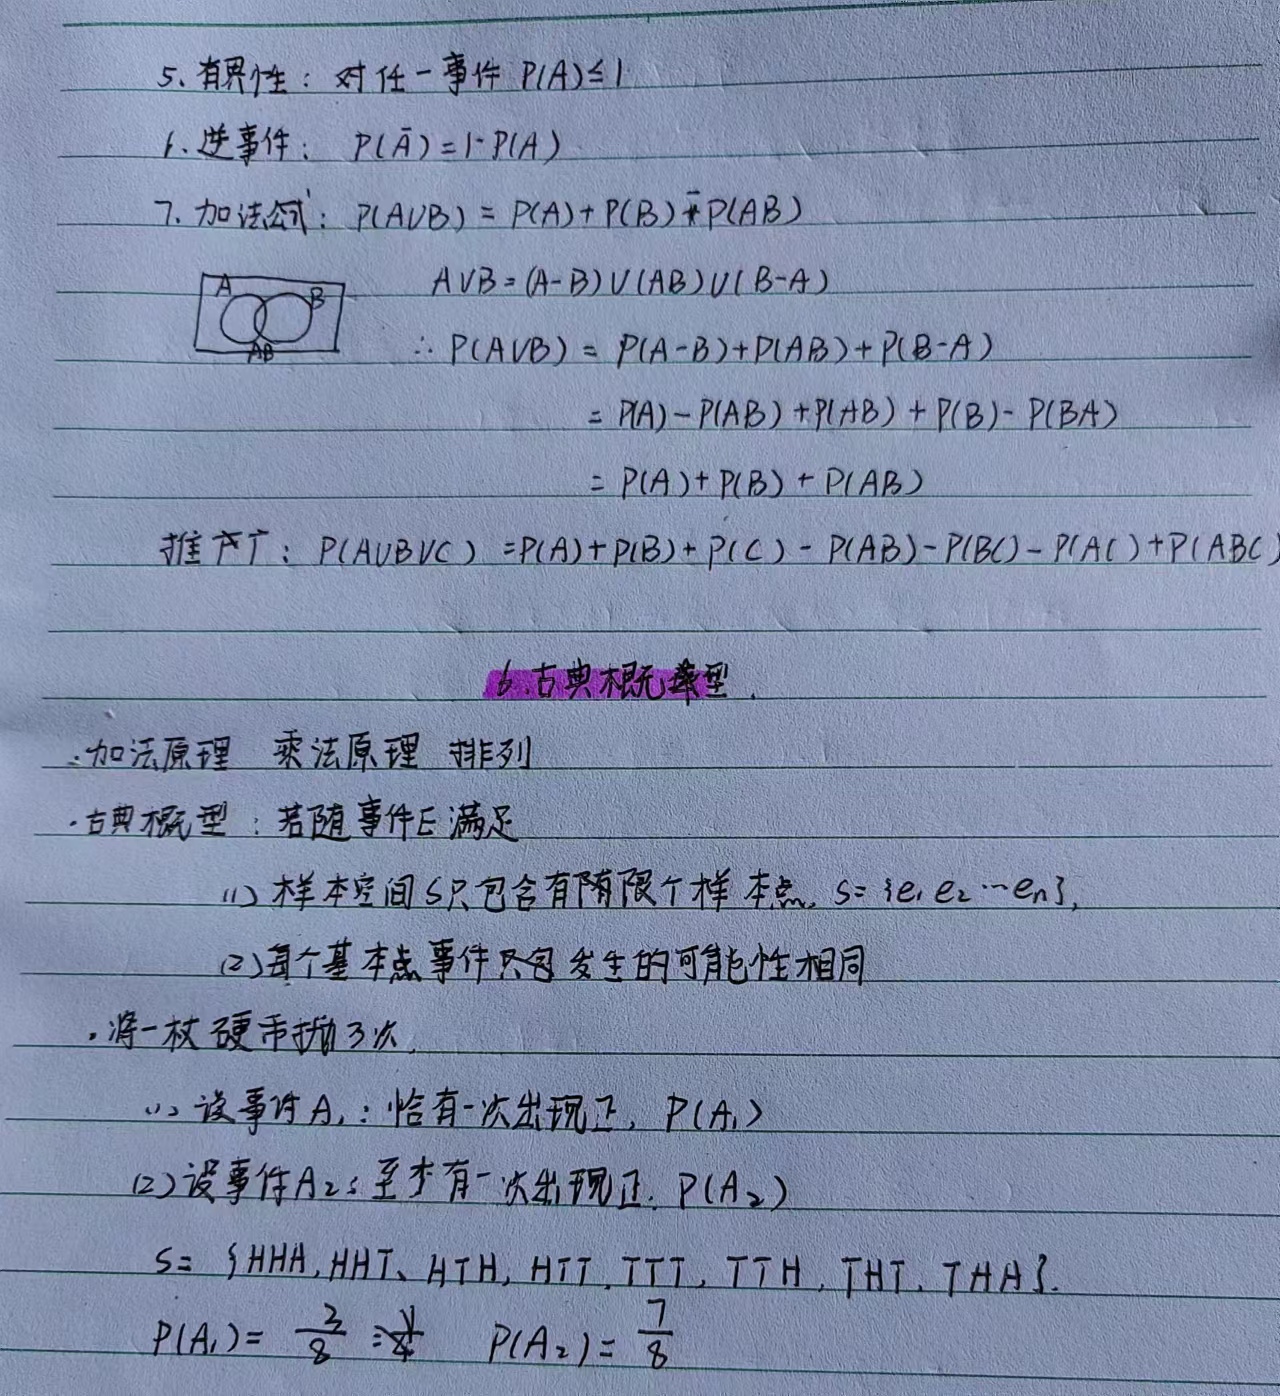 5. 有界性：对任一事件 P(A)≤1
6. 逆事件： P(Ā)=1-P(A)
7. 加法公式：P(A∪B) = P(A)+P(B)-P(AB)
A B AB
A∪B=(A-B)∪(AB)∪(B-A)
∴ P(A∪B) = P(A-B)+P(AB)+P(B-A)
= P(A)-P(AB)+P(AB)+P(B)-P(BA)
= P(A)+P(B)+P(AB)
推广：P(A∪B∪C) =P(A)+P(B)+P(C)-P(AB)-P(BC)-P(AC)+P(ABC)
6.古典概型.
·加法原理 乘法原理 排列
·古典概型：若随事件E满足
(1) 样本空间S只包含有限个样本点, S={e1 e2 …en},
(2)每个基本点事件 发生的可能性相同
·将一枚硬币抛3次,
(1) 设事件A1：恰有一次出现正, P(A1)
(2)设事件A2：至少有一次出现正. P(A2)
S= {HHH,HHT、HTH, HTT, TTT, TTH, THT, THH}.
P(A1)= 3/8 P(A2)= 7/8